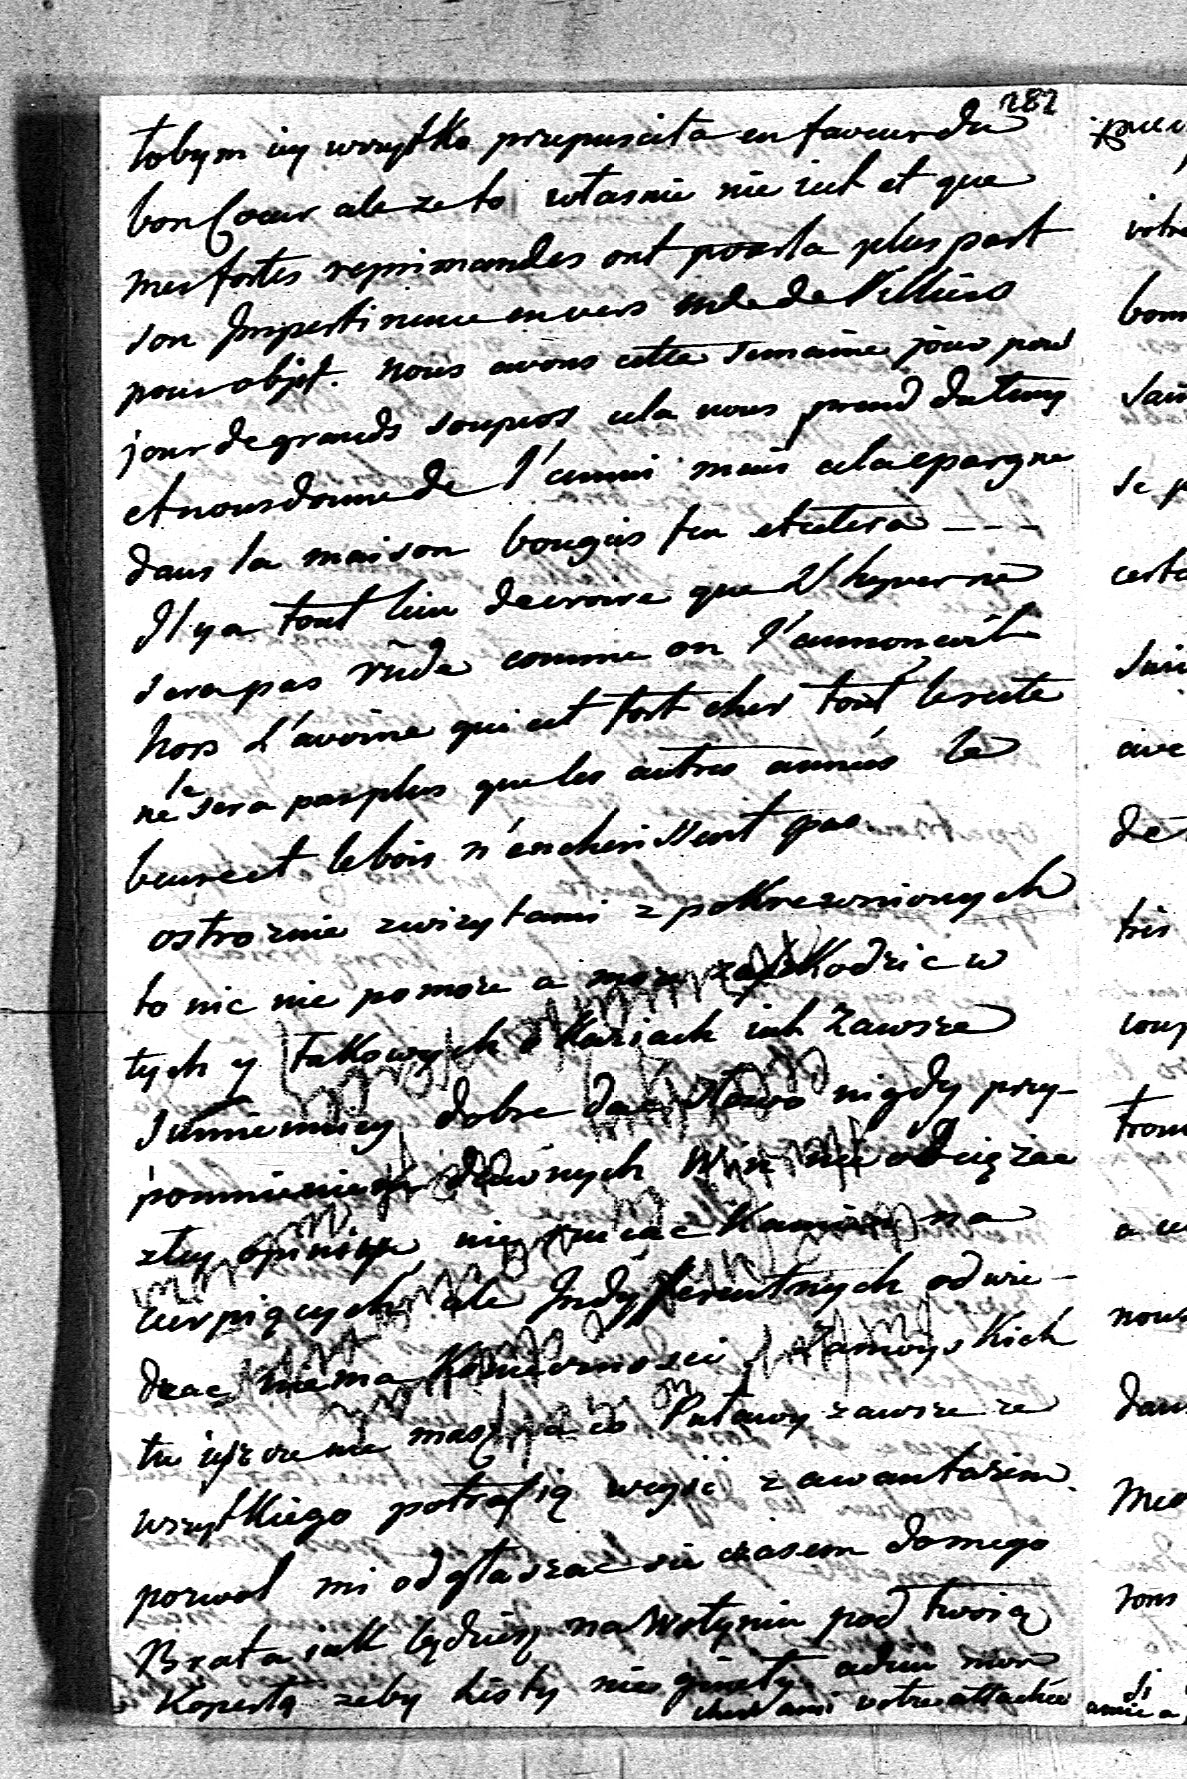 282
tobym iey wszystko przepuscita en faveur du
bon Coeur ale ze to własnie nie iest et que
mes fortes reprimandes ont pour la plus part
son Impertinence envers mde de Villiers
pour objet. nous avons cette semaine jour pour
jour de grands soupers cela nous prend du tems
et nous donne de l'ennui mais cela epargne
dans la maison bougies feu etcetera ---
Il y a tout lieu de croire que l'hyver ne
sera pas rude comme on l'annoncoit
hors l'avoine qui est fort cher tout le reste
ne le sera pas plus que les autres années le
beure et le bois n'encherissent pas
ostroznie z wizytami z pokrewnionych
to nic nie pomoze a moze zaszkodzic w
tych y takowych okaziach iest zawsze
sumienniey dobre dać słowo nigdy przy-
pomnieniem dawnych Win nie obciązac
złey opinii, nie rzucac Kamien na
cierpiących, ale Indyfferentnych odwie-
dzac niema Konieczności, Zamoyskich
tu ieszcze nie masz, co Puławy zawsze ze
wszystkiego potrafią wyiść z awantazem.
pozwol mi odgłaszac sie czasem do mego
Brata iak będziesz na Wołyniu pod twoią
Kopertą zeby Listy nie gineły adieu mon
cher ami votre attachée
votre
bonn
se p
certa
avec
de
très
coup
trou
a ce
nous
dans
si
amie a